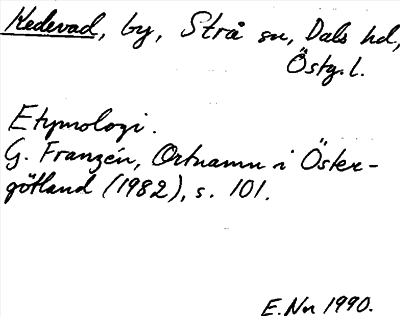 Kedevad, by, Strå sn, Dals hd,
Östg.l.
Etymologi.
G. Franzén, Ortnamn i Öster-
götland (1982), s. 101.
E. Nn 1990.